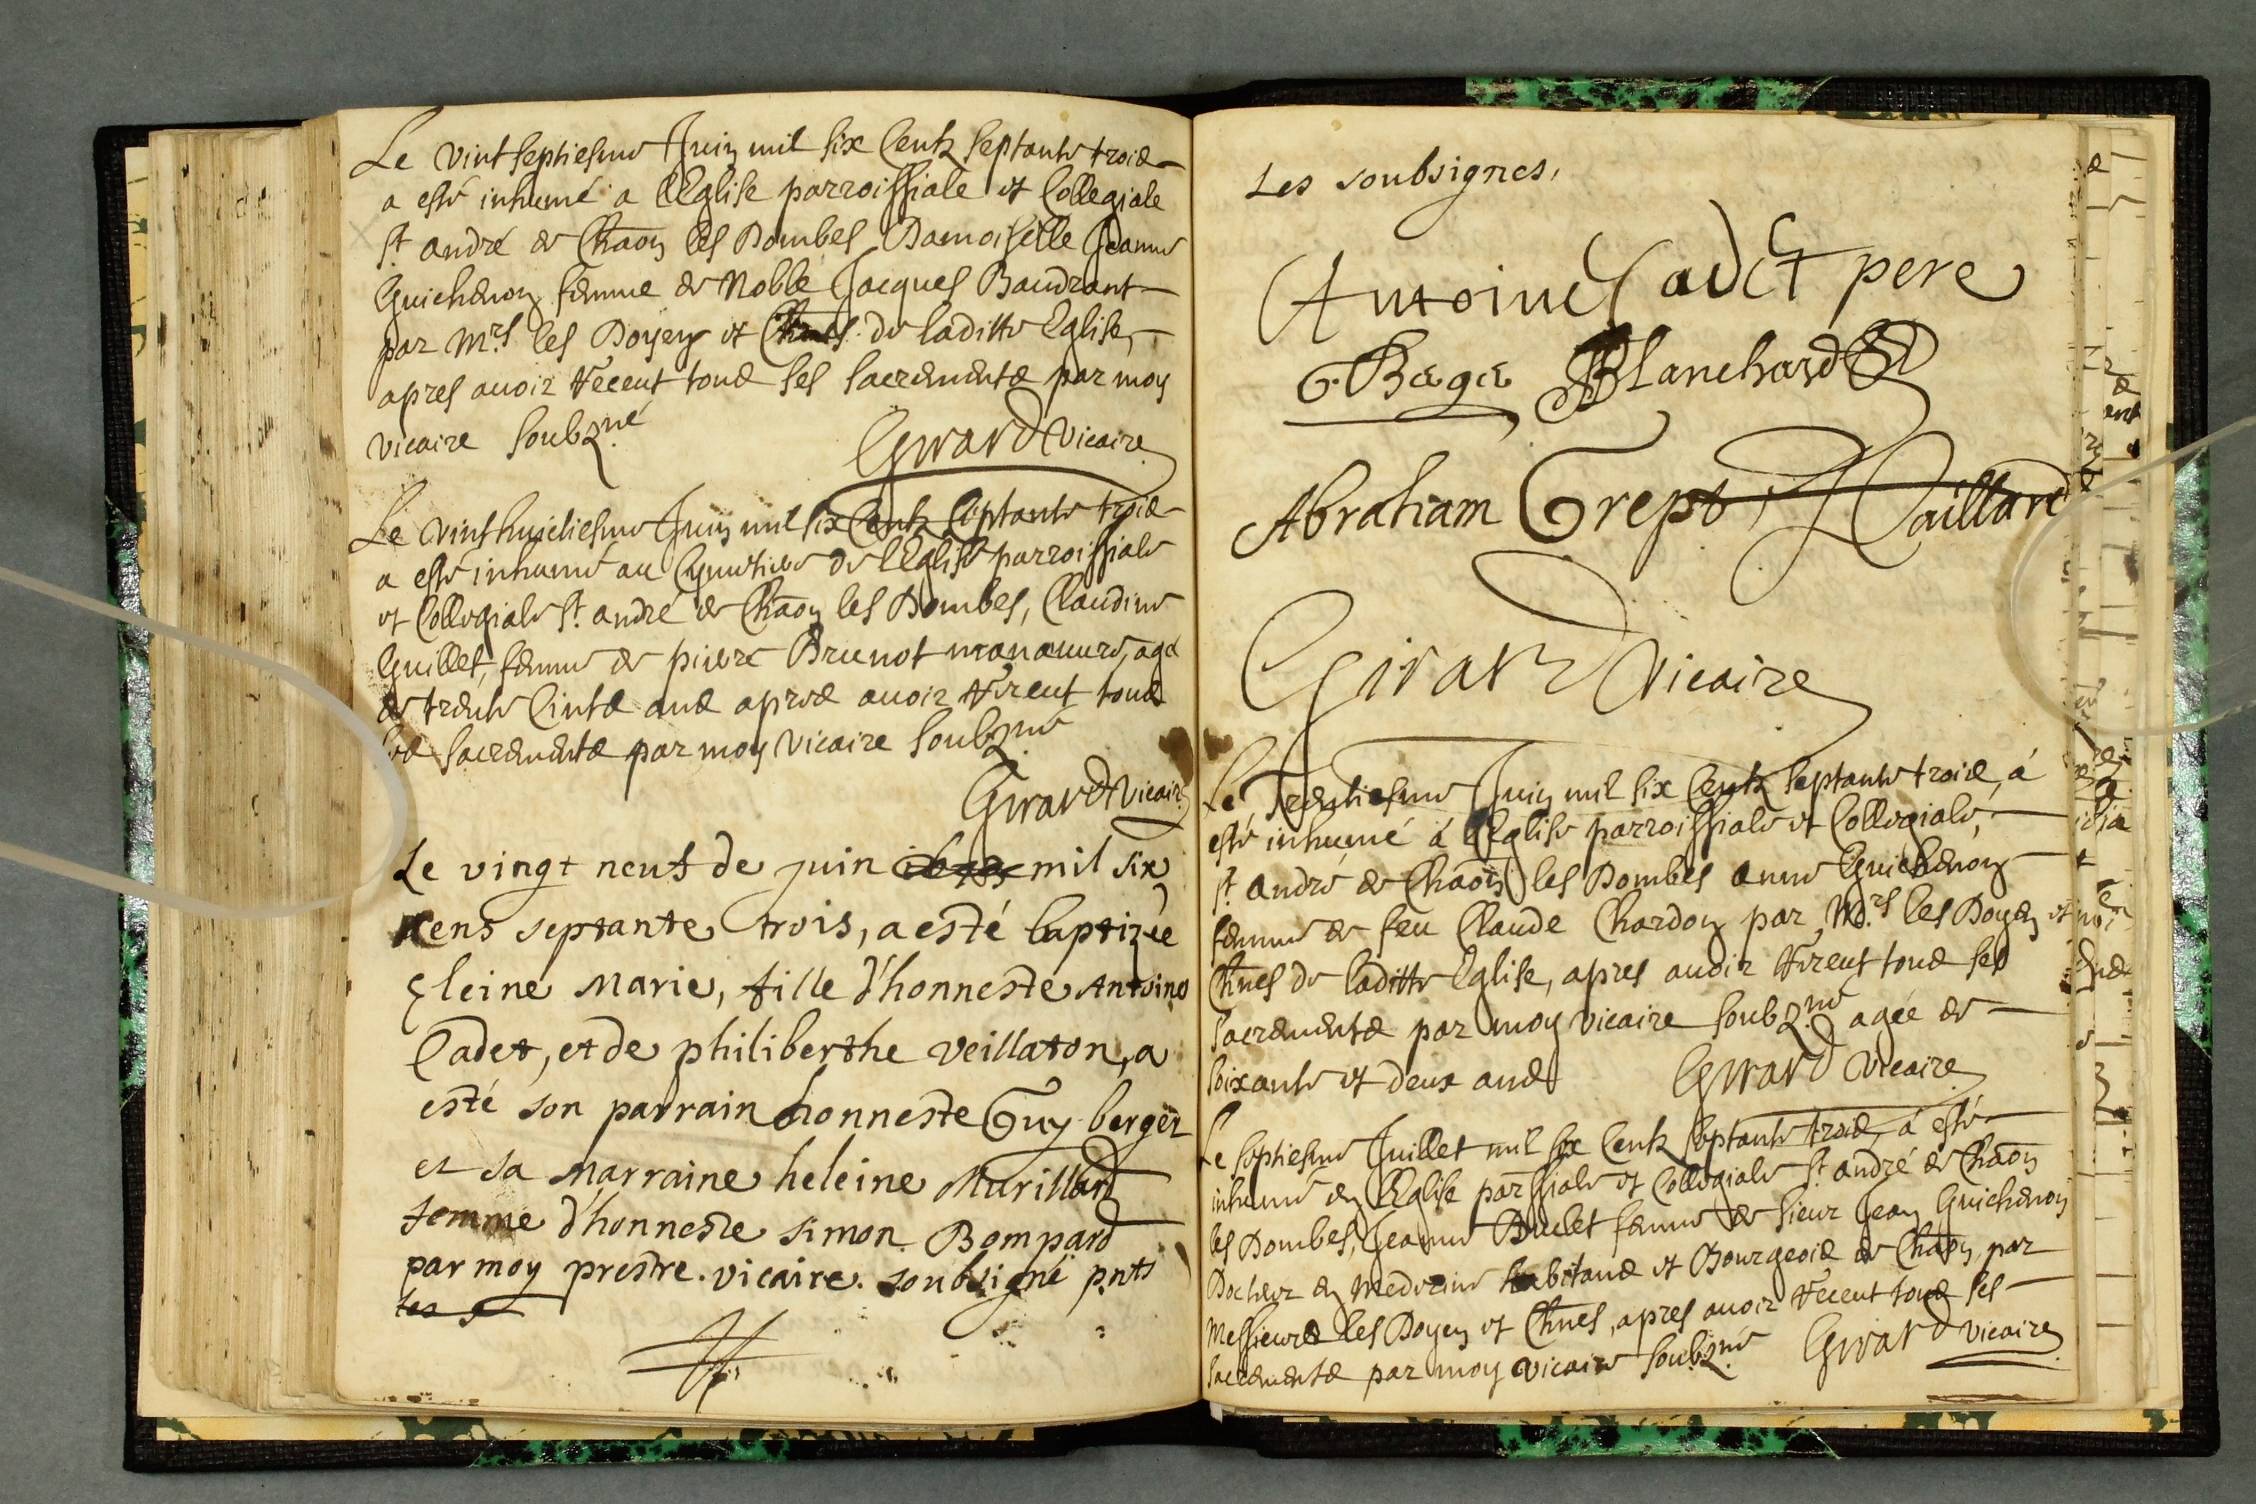 Le vint septiesme Juin mil six Centz septante trois
a esté inhumé a l'Eglise parroissiale et Collegiale
St andré de Chãon les Dombes Damoiselle Jeanne
Guichenon femme de Noble Jacques Baudrant
par Mrs les Doyen et Chnes de laditte Eglise,
apres avoir Receut tous ses sacrements par moy
vicaire soubzné
Girard vicaire
Le vint huictiesme Juin mil six Centz septante trois
a esté inhumé au Cymetiere de l'Eglise parroissiale
et Collegiale St andré de Chãon les Dombes, Claudine
Guillet, femme de pierre Brunot manœuvre, agé
de trente Cints ans apres avoir Receut tous
ses sacrements par moy vicaire soubzné
Girard vicaire
Le vingt neuf de juin mil six
cens septante trois, a esté baptizée
Eleine Marie, fille d'honneste Antoine
Cadet, et de philiberthe veillaton, a
esté son parrain honneste Guy berger
et sa marraine heleine Murillard
femme d'honneste simon Bompard
par moy prestre. vicaire. soubsigné pnts
les s
Les soubsignes,
Antoine Cadet pere
G. Bergé Blanchard
Abraham Greppo Paillard
Girard vicaire
Le Trentiesme Juin mil six Centz septante trois, á
esté inhumé á l'Eglise parroissiale et Collegiale,
St andré de Chãon les Dombes anne Guichenon
femme de feu Claude Chardon par Mrs les Doyen et
Chnes de laditte Eglise, apres avoir Receut tous ses
sacrements par moy vicaire soubzné agée de
soixante et deux ans Girard vicaire
Le septiesme Juillet mil six Centz septante trois, á esté
inhumé en l'Eglise parssiale et Collegiale St andré de Chãon
les Dombes, Jeanne Bulet femme de sieur Jean Guichenon
Docteur en Medecine habitans et Bourgeois de Chãon par
Messieurs les Doyen et Chnes, apres avoir Receut tous ses
sacrements par moy vicaire soubzné Girard vicaire